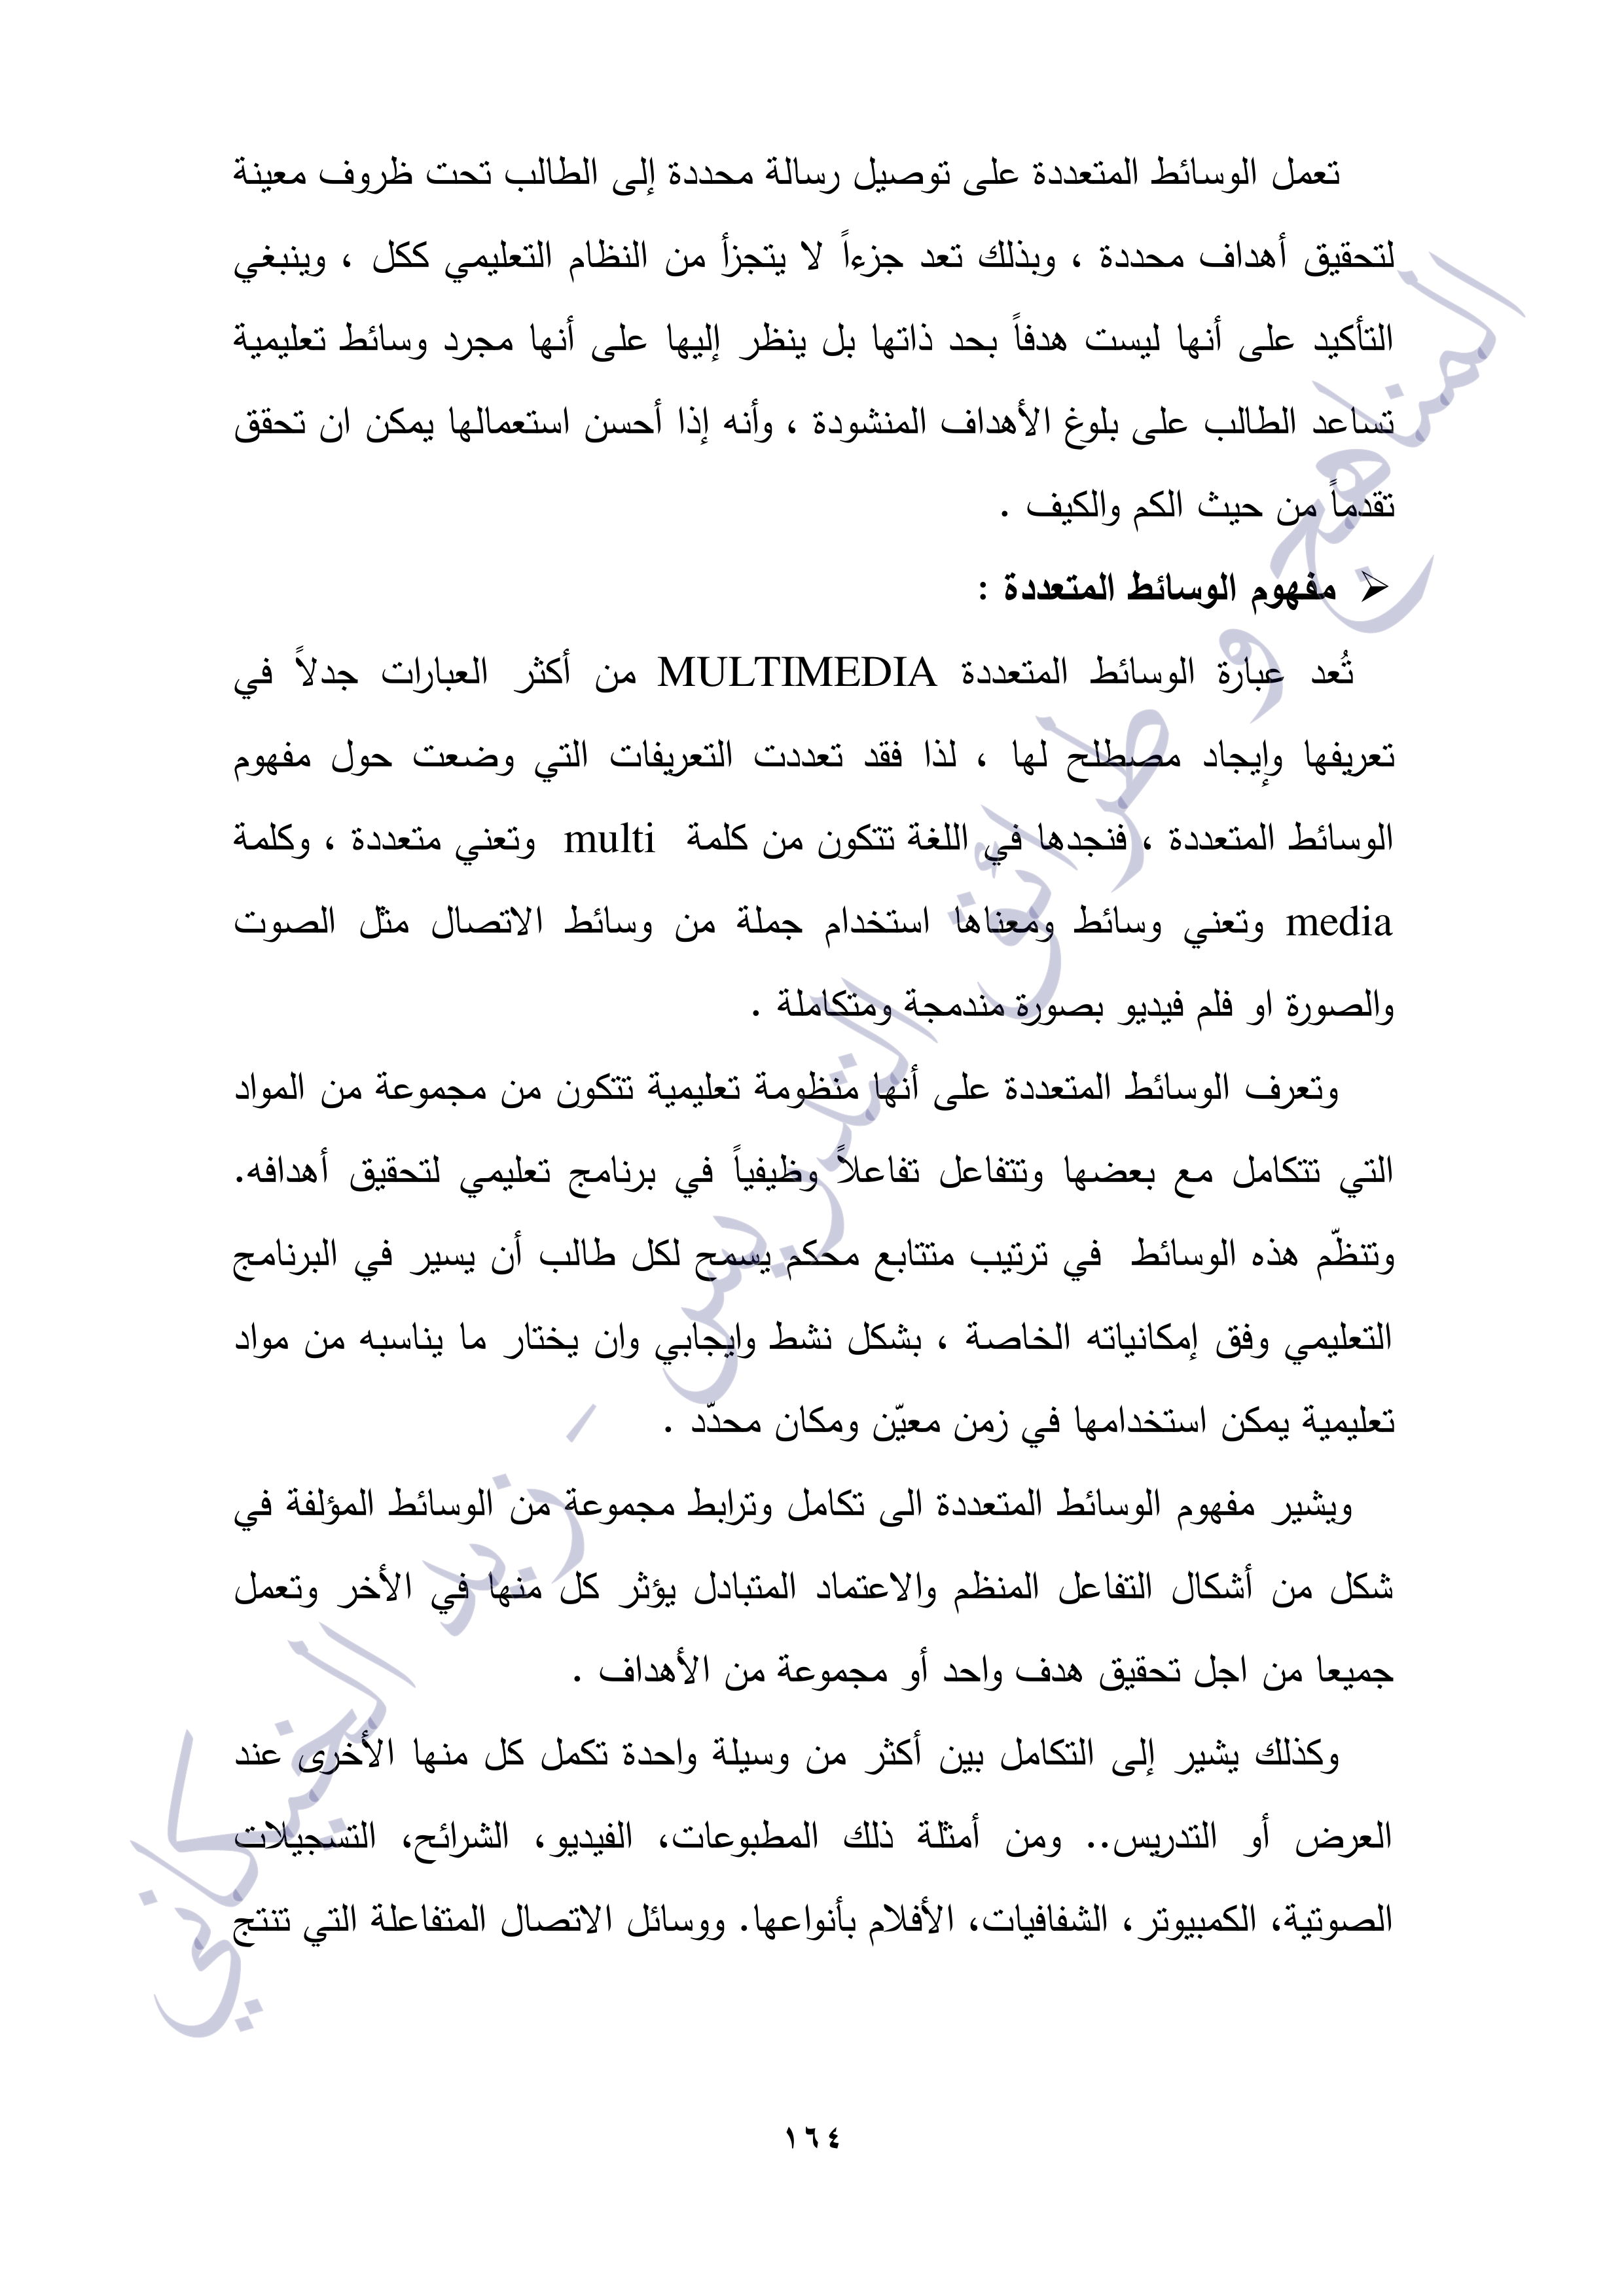 تعمل الوسائط المتعددة على توصيل رسالة محددة إلى الطالب تحت ظروف معينة
لتحقيق أهداف محددة ، وبذلك تعد جزءاً لا يتجزأ من النظام التعليمي ككل ، وينبغي
التأكيد على أنها ليست هدفاً بحد ذاتها بل ينظر إليها على أنها مجرد وسائط تعليمية
تساعد الطالب على بلوغ الأهداف المنشودة ، وأنه إذا أحسن استعمالها يمكن ان تحقق
تقدماً من حيث الكم والكيف .
➢ مفهوم الوسائط المتعددة :
تُعد عبارة الوسائط المتعددة MULTIMEDIA من أكثر العبارات جدلاً في
تعريفها وإيجاد مصطلح لها ، لذا فقد تعددت التعريفات التي وضعت حول مفهوم
الوسائط المتعددة ، فنجدها في اللغة تتكون من كلمة multi وتعني متعددة ، وكلمة
media وتعني وسائط ومعناها استخدام جملة من وسائط الاتصال مثل الصوت
والصورة او فلم فيديو بصورة مندمجة ومتكاملة .
وتعرف الوسائط المتعددة على أنها منظومة تعليمية تتكون من مجموعة من المواد
التي تتكامل مع بعضها وتتفاعل تفاعلاً وظيفياً في برنامج تعليمي لتحقيق أهدافه.
وتنظّم هذه الوسائط في ترتيب متتابع محكم يسمح لكل طالب أن يسير في البرنامج
التعليمي وفق إمكانياته الخاصة ، بشكل نشط وايجابي وان يختار ما يناسبه من مواد
تعليمية يمكن استخدامها في زمن معيّن ومكان محدّد .
ويشير مفهوم الوسائط المتعددة الى تكامل وترابط مجموعة من الوسائط المؤلفة في
شكل من أشكال التفاعل المنظم والاعتماد المتبادل يؤثر كل منها في الأخر وتعمل
جميعا من اجل تحقيق هدف واحد أو مجموعة من الأهداف .
وكذلك يشير إلى التكامل بين أكثر من وسيلة واحدة تكمل كل منها الأخرى عند
العرض أو التدريس.. ومن أمثلة ذلك المطبوعات، الفيديو، الشرائح، التسجيلات
الصوتية، الكمبيوتر، الشفافيات، الأفلام بأنواعها. ووسائل الاتصال المتفاعلة التي تنتج
١٦٤
المناهج و طرائق التدريس - زيد الخيكاني